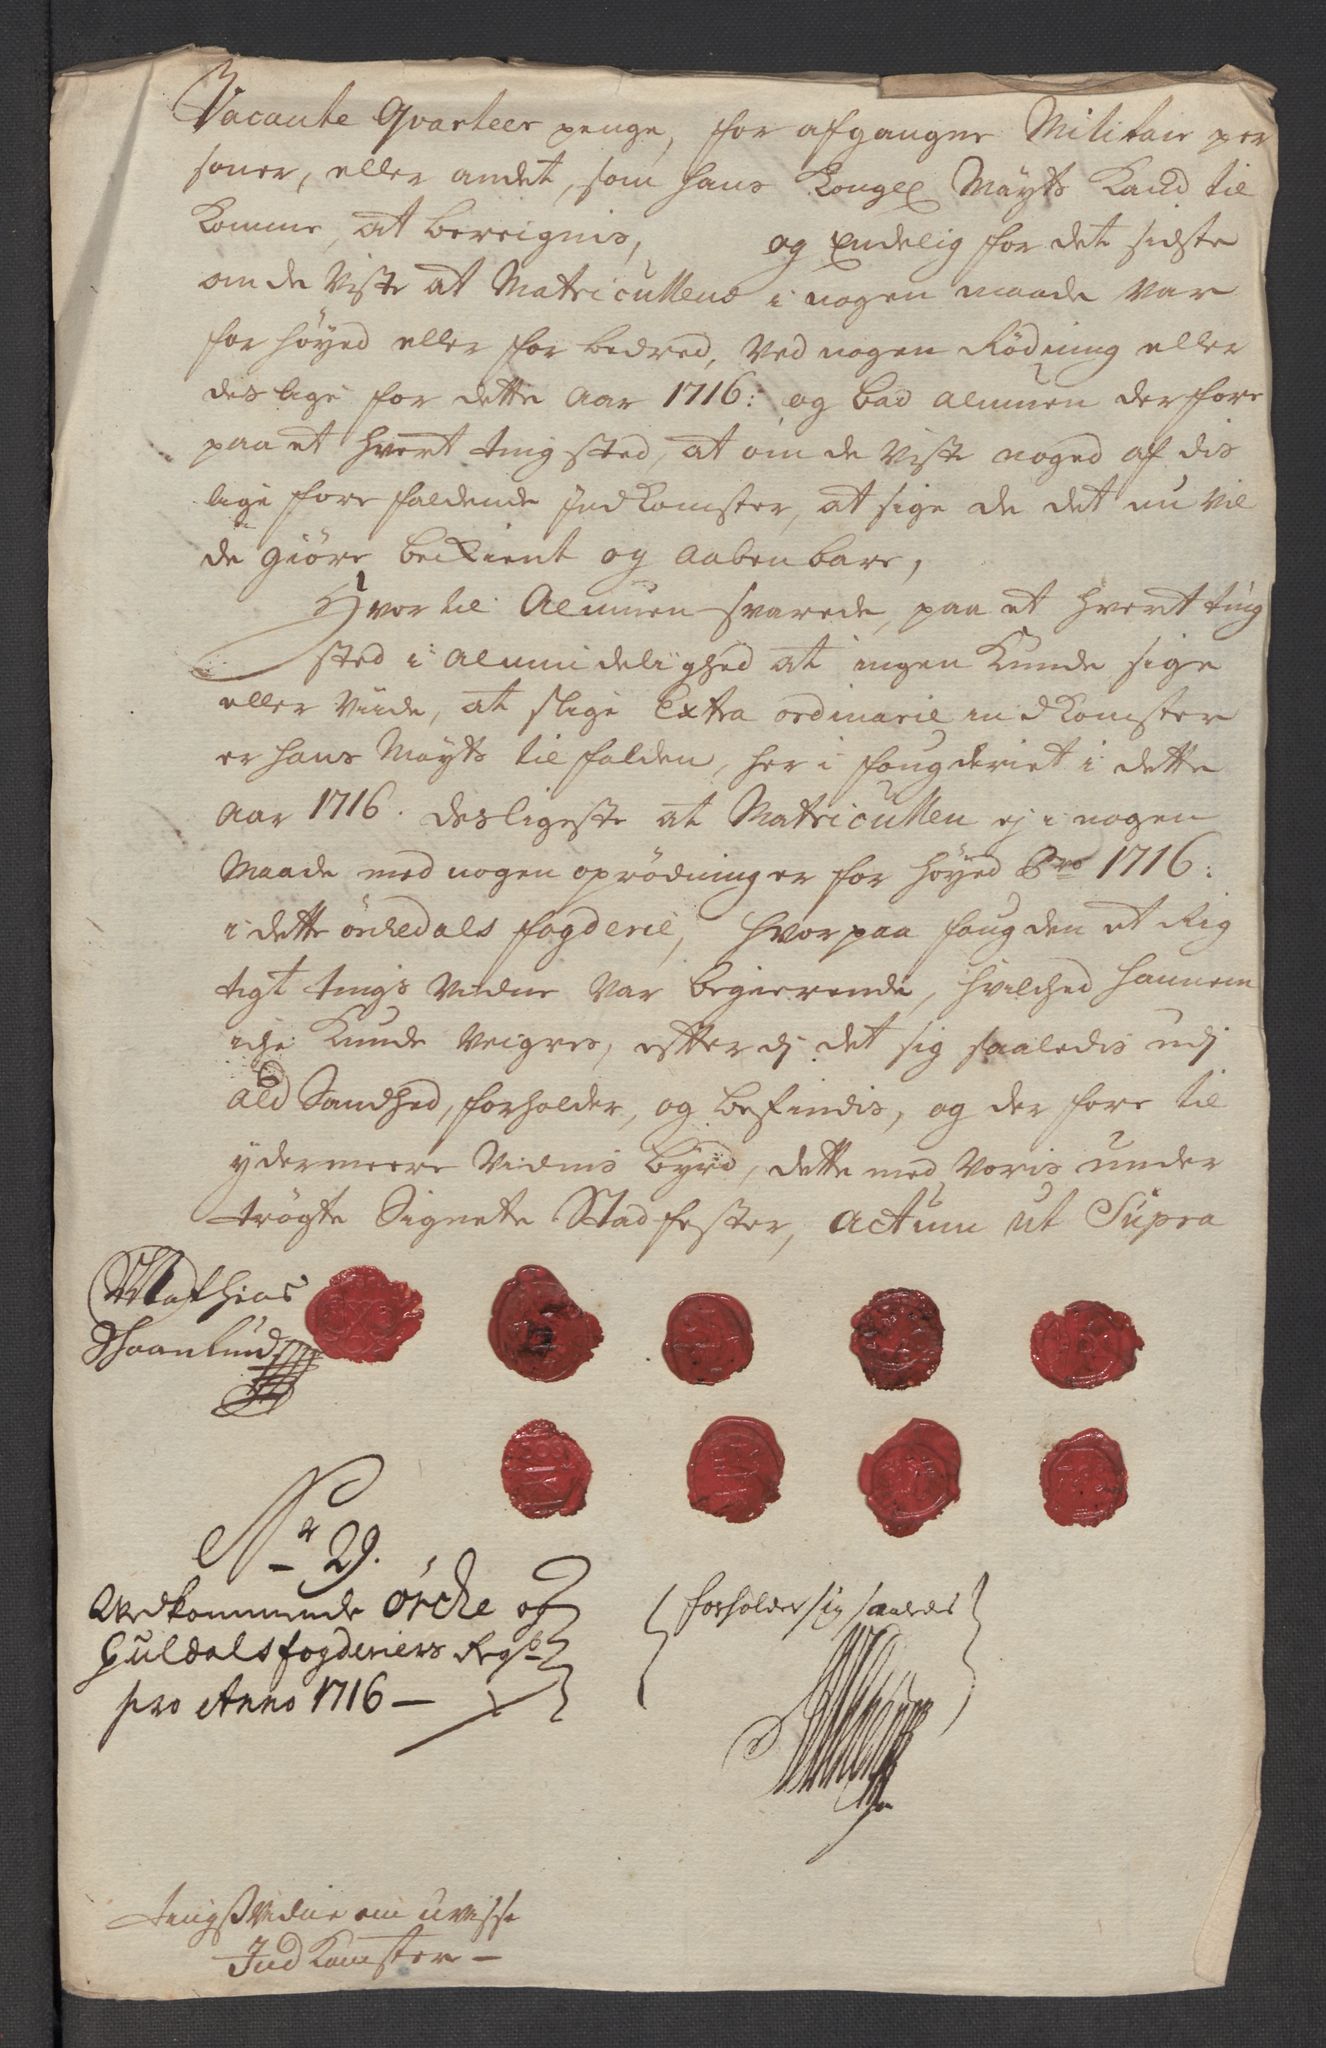 Vacante Qvarteer penge, for afgangne Militair per
soner, eller andet, som hans Kongel Mayts Kand til
komme, at bereignis, og Endelig for det sidste
om de Viste at Matricullens i nogen maade Var
for høyed eller for bedred, Ved nogen Rødning eller
des lige for dette Aar 1716: og bad Almuen derfore
paa et hvert ting sted, at om de Viste noged af dis
lige fore faldende Ind Komster, at sige de det nu Vil
de giøre bekient og aabenbare,
Hvortil Almuen svarede, paa et hvert ting
sted i Almindelighed at ingen Kunde sige
eller Viide, at slige Extra ordinarie ind Komster
er hans Mayts til falden, her i fougderiet i dette
Aar 1716. desligeste at Matricullen ej i nogen
Maade med nogen oprødninger for høyed pro 1716:
i dette örchedals fogderie, hvorpaa fougden et Rig
tigt tings Vidne Var begierende, hvilched hannem
iche Kunde Veigres, effterdj det sig saaledis udj
ald Sandhed, forholder, og befindis, og der fore til
ydermeere Vidnis byrd, dette med Voris under
trögte Signete Stadfester, Actum ut Supra
Mathias
Schaanlund
No 29.
Vedkommende örche og
Guldals fogderiers Regsb
pro Anno 1716 —
forholder sig saaledes
tingsVidne om uvisse
Ind Komster —